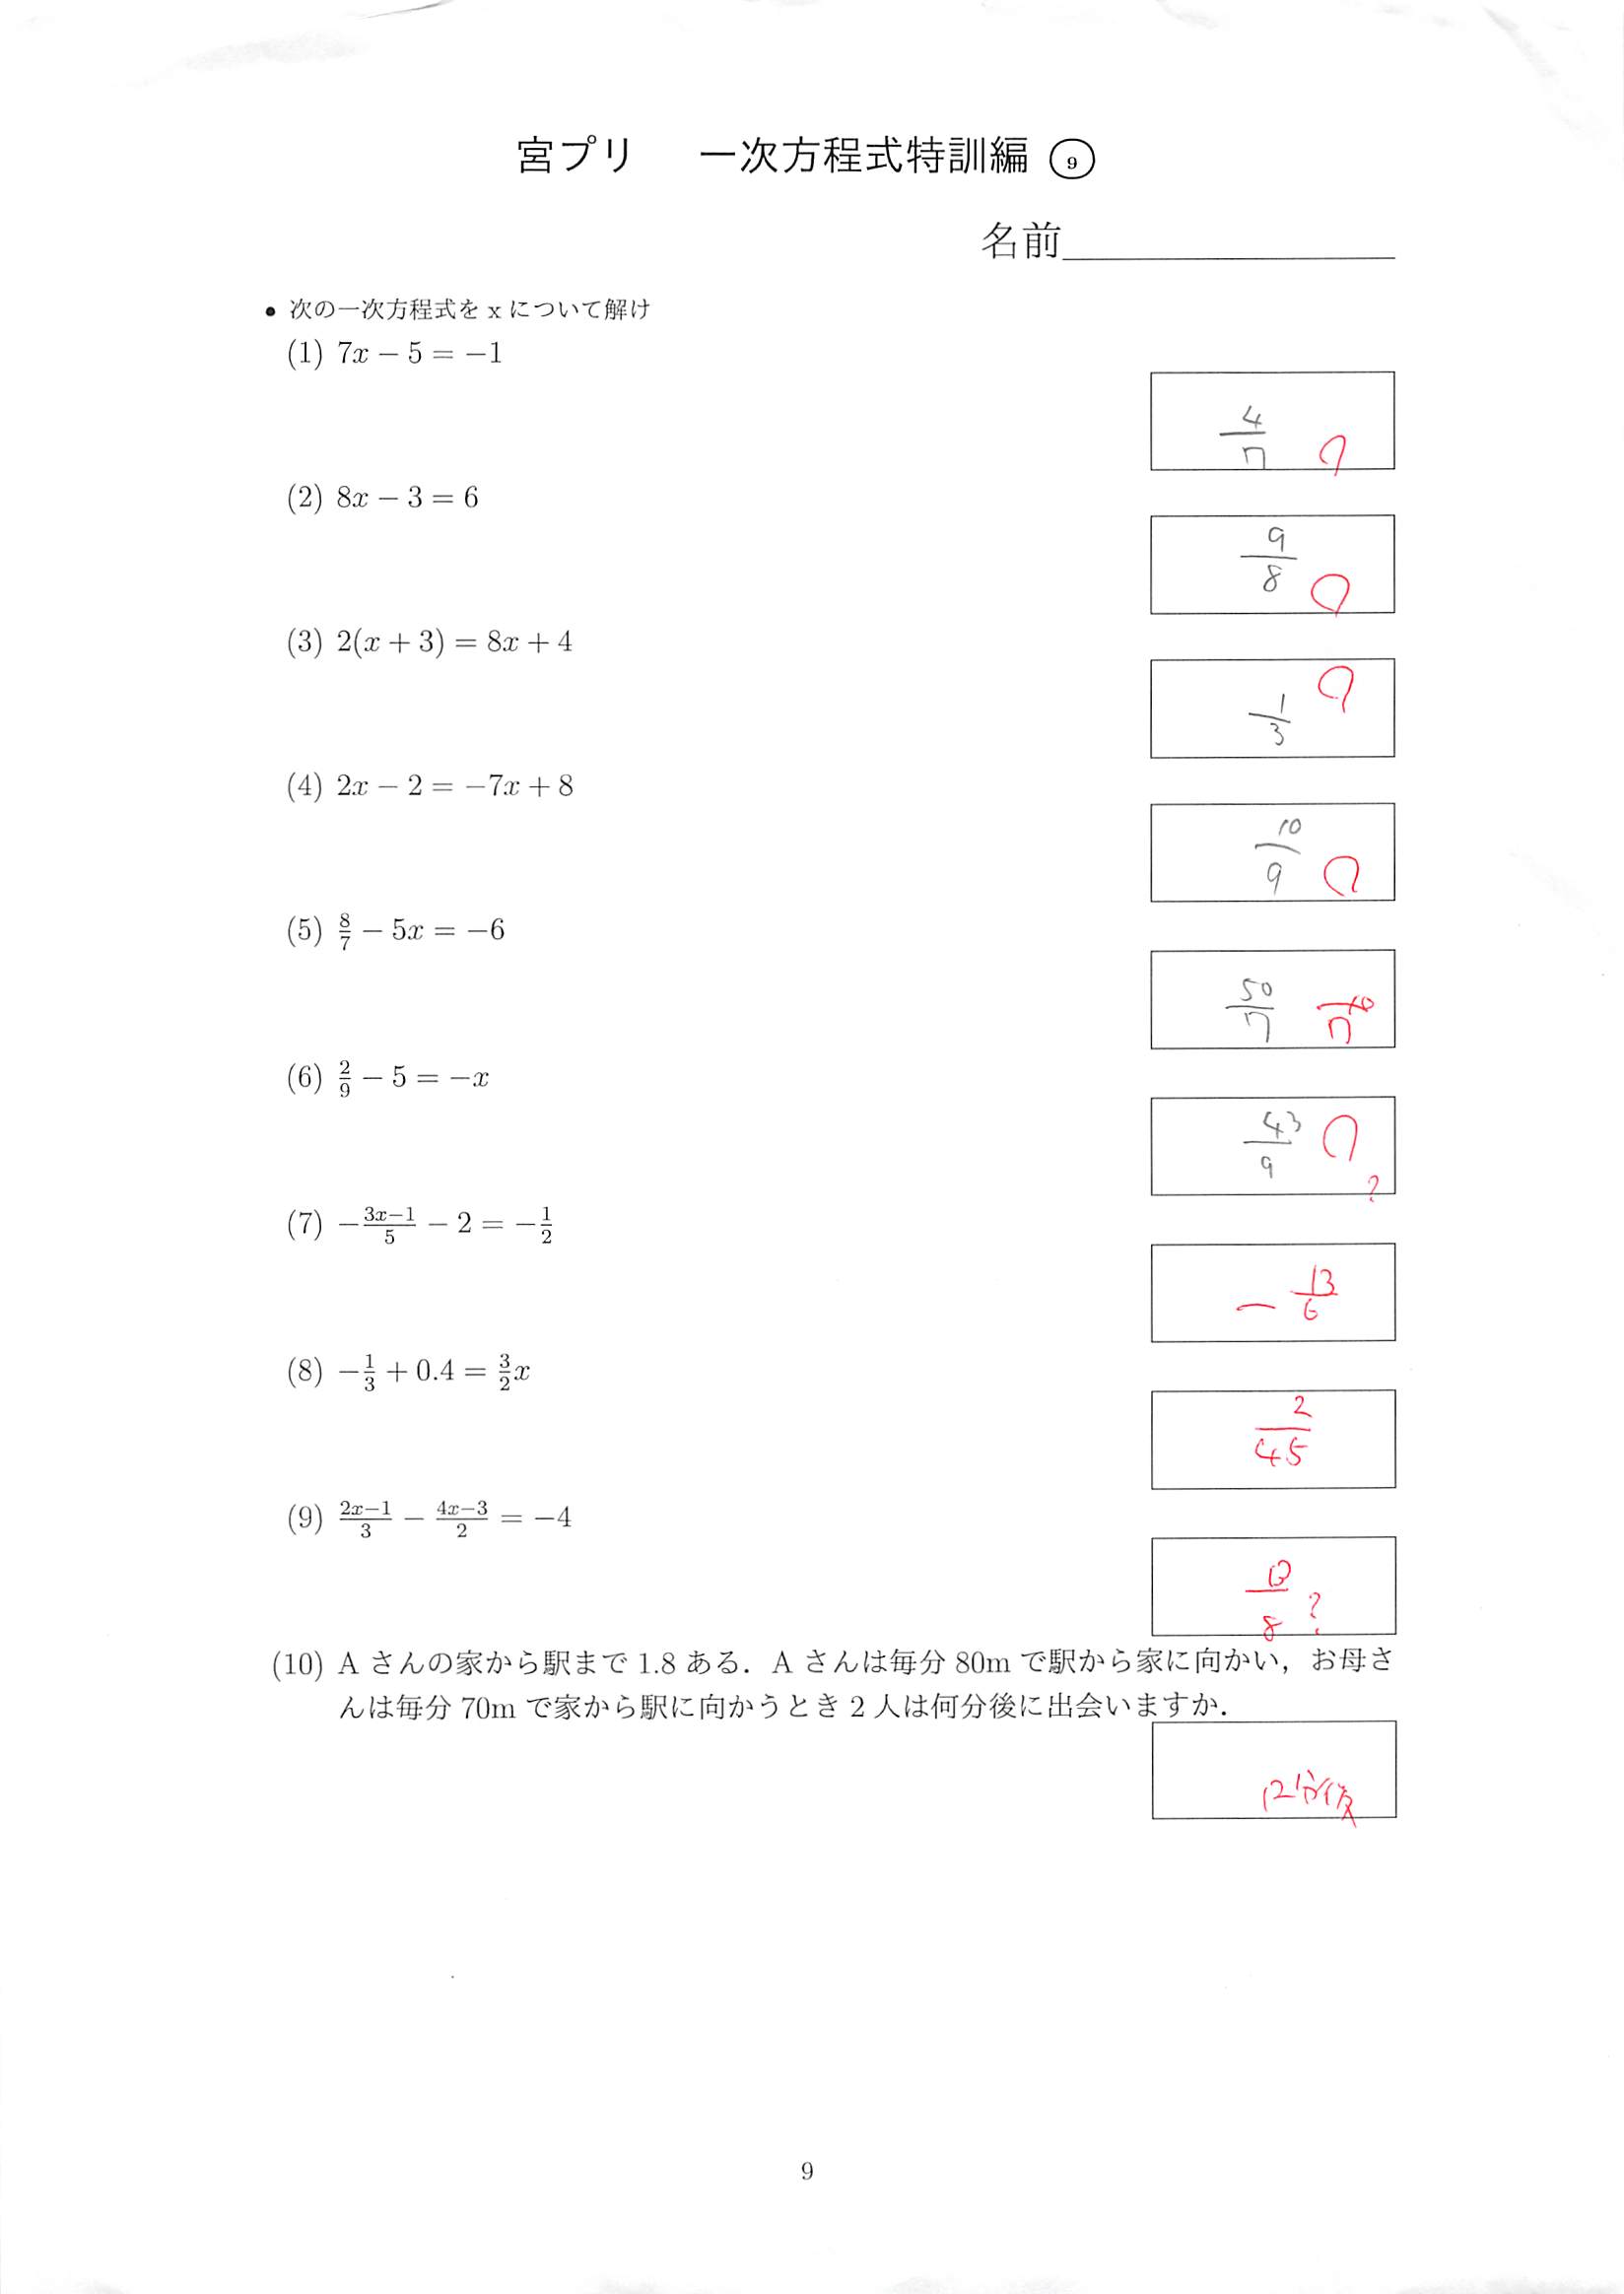 宮プリ 一次方程式特訓編 ⑨
名前
• 次の一次方程式を x について解け
(1) 7x − 5 = −1
4/7
(2) 8x − 3 = 6
9/8
(3) 2(x + 3) = 8x + 4
1/3
(4) 2x − 2 = −7x + 8
10/9
(5) 8/7 − 5x = −6
50/7 10/7
(6) 2/9 − 5 = −x
43/9 ?
(7) −(3x−1)/5 − 2 = −1/2
− 13/6
(8) −1/3 + 0.4 = 3/2x
2/45
(9) (2x−1)/3 − (4x−3)/2 = −4
8 ?
(10) A さんの家から駅まで 1.8 ある．A さんは毎分 80m で駅から家に向かい，お母さ
んは毎分 70m で家から駅に向かうとき 2 人は何分後に出会いますか．
12分後
9